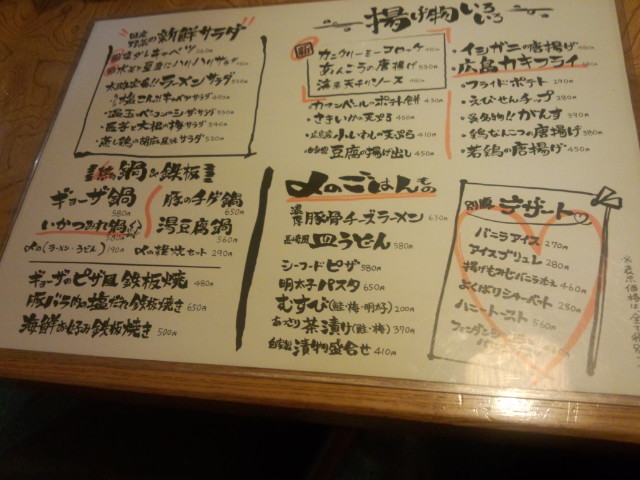 新鮮サラダ
塩ダレキャベツ
水菜と豆腐のハリハリサラダ
ラーメンサラダ
蒸し鶏の胡麻風味サラダ 530円
揚げ物いろいろ
カニクリーミーコロッケ
あんこうの唐揚げ 530円
海老天チリソース
カマンベールのポテト餅 430円
さきいかの天ぷら 450円
小いわしの天ぷら 410円
豆腐の揚げ出し 450円
・イシガニの唐揚げ
・広島カキフライ
・フライドポテト 280円
・えびせんチップ 290円
・がんす 390円
・鶏なんこつの唐揚げ 380円
・若鶏の唐揚げ 450円
鍋&鉄板
ギョーザ鍋 580円
豚のチゲ鍋 650円
いかつみれ鍋 580円
湯豆腐鍋 560円
〆の(ラーメン・うどん) 190円
〆の雑炊セット 290円
ギョーザのピザ風鉄板焼 480円
豚バラ肉の塩だれ鉄板焼き 650円
海鮮お好み鉄板焼き 500円
〆のごはんもの
濃厚 豚骨チーズラーメン 630円
長崎風 皿うどん 580円
シーフードピザ 580円
明太子パスタ 650円
むすび(鮭・梅・明太) 200円
あっさり 茶漬け(鮭・梅) 370円
自家製 漬物盛合せ 410円
別腹 デザート
バニラアイス 270円
アイスブリュレ 280円
揚げもみじバニラ添え 460円
よくばりシャーベット 250円
ハニートースト 560円